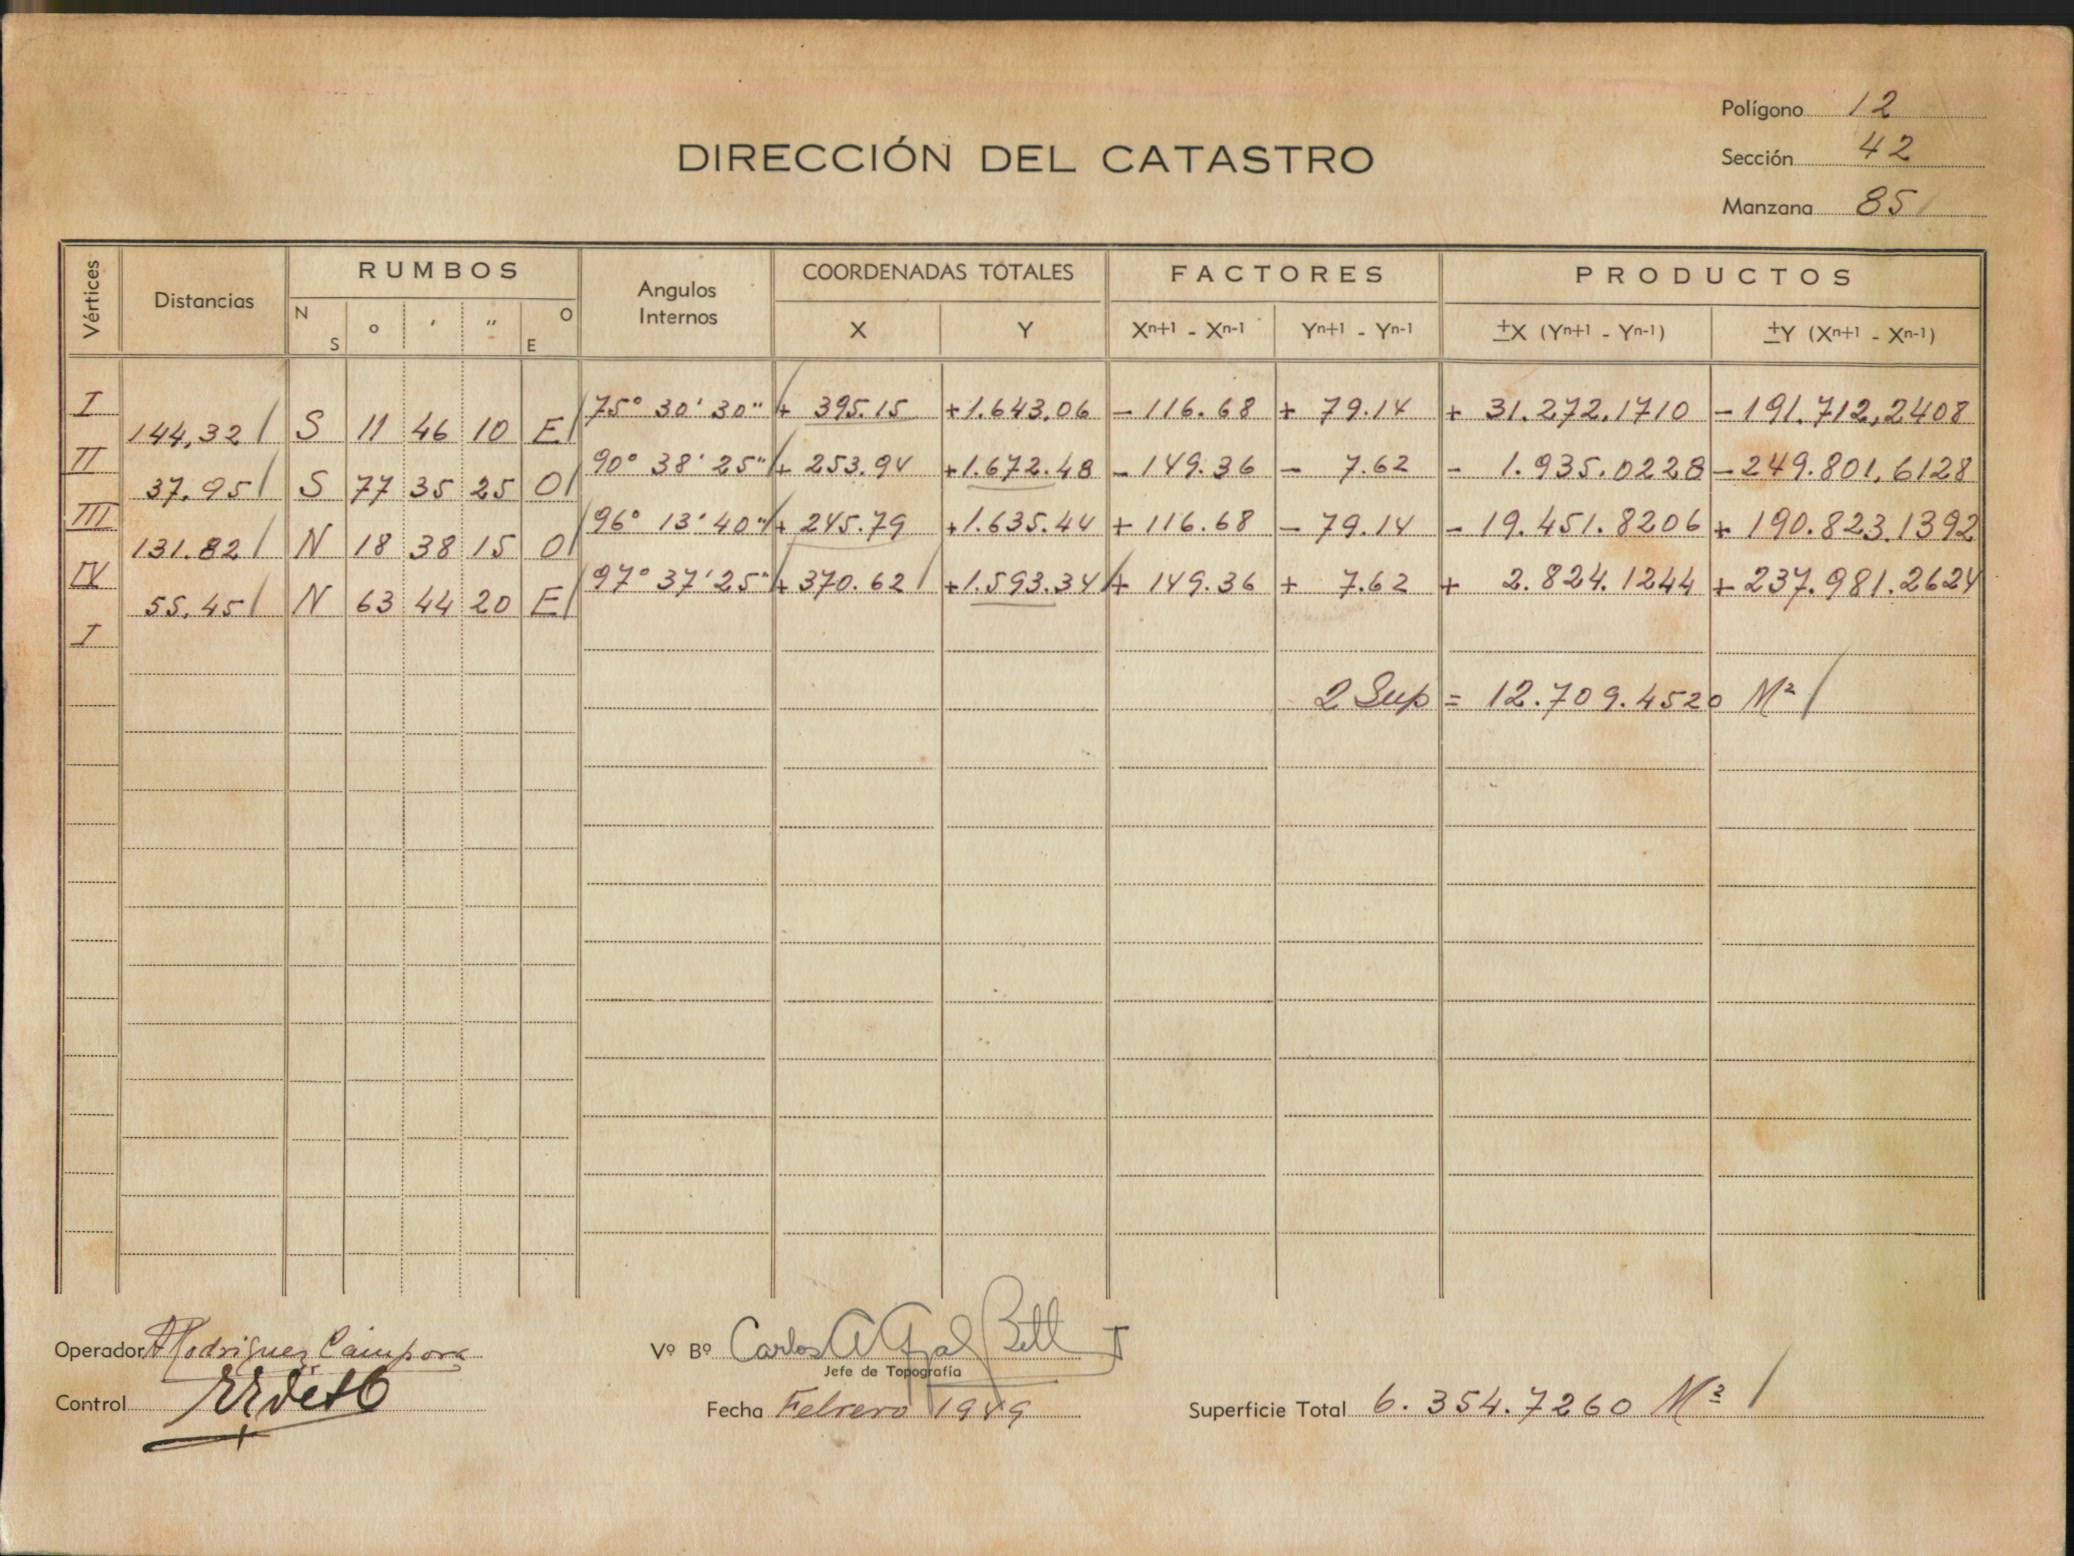 Polígono 12
DIRECCIÓN DEL CATASTRO
Sección 42
Manzana 85
Vértices Distancias RUMBOS Angulos Internos COORDENADAS TOTALES FACTORES PRODUCTOS
N S ° ' " O E X Y Xn+1 - Xn-1 Yn+1 - Yn-1 ±X (Yn+1 - Yn-1) ±Y (Xn+1 - Xn-1)
I 75° 30' 30" + 395.15 +1.643.06 -116.68 + 79.14 + 31.272.1710 -191.712,2408
144,32 S 11 46 10 E
II 90° 38' 25" + 253.94 +1.672.48 -149.36 - 7.62 - 1.935.0228 -249.801,6128
37.95 S 77 35 25 O
III 96° 13' 40" + 245.79 +1.635.44 +116.68 - 79.14 - 19.451.8206 + 190.823.1392
131.82 N 18 38 15 O
IV 97° 37' 25" +370.62 +1.593.34 + 149.36 + 7.62 + 2.824.1244 +237.981.2624
55.45 N 63 44 20 E
I
2 Sup = 12.709.4520 M²
Operador A Rodríguez Cámpora Vº Bº Carlos A
Jefe de Topografía
Control Fecha Febrero 1949 Superficie Total 6.354.7260 M²